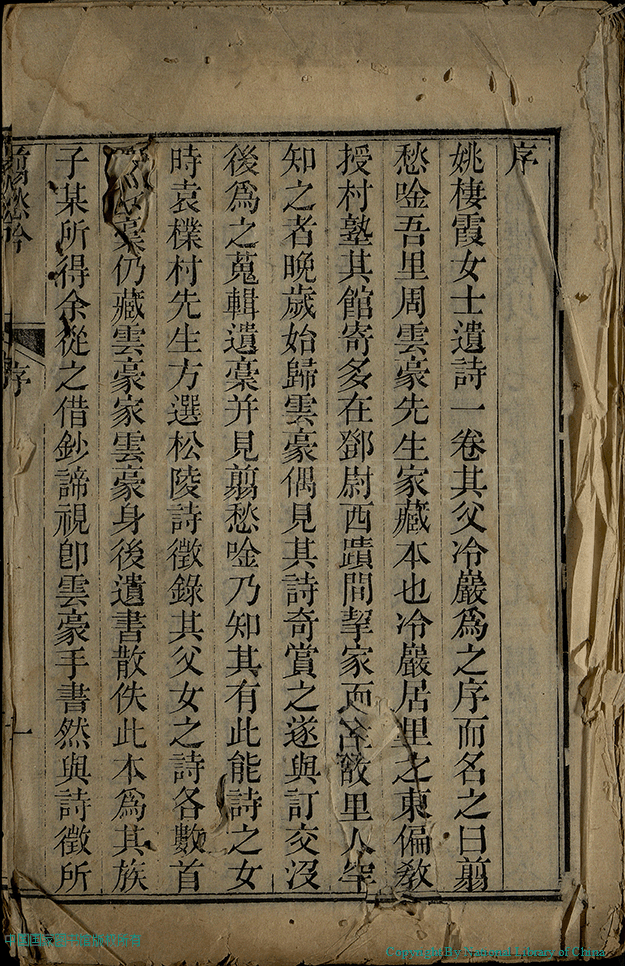 序
姚棲霞女士遺詩一卷其父冷巖爲之序而名之曰翦
愁唫吾里周雲豪先生家藏本也冷巖居里之東偏敎
授村塾其館寄多在鄧尉西蹟間挈家而往故里人罕
知之者晚歲始歸雲豪偶見其詩奇賞之遂與訂交沒
後爲之蒐輯遺槀并見翦愁唫乃知其有此能詩之女
時袁樸村先生方選松陵詩徵錄其父女之詩各數首
槀仍藏雲豪家雲豪身後遺書散佚此本爲其族
子某所得余從之借鈔諦視卽雲豪手書然與詩徵所
翦愁唫 序 一
Copyright By National Library of China